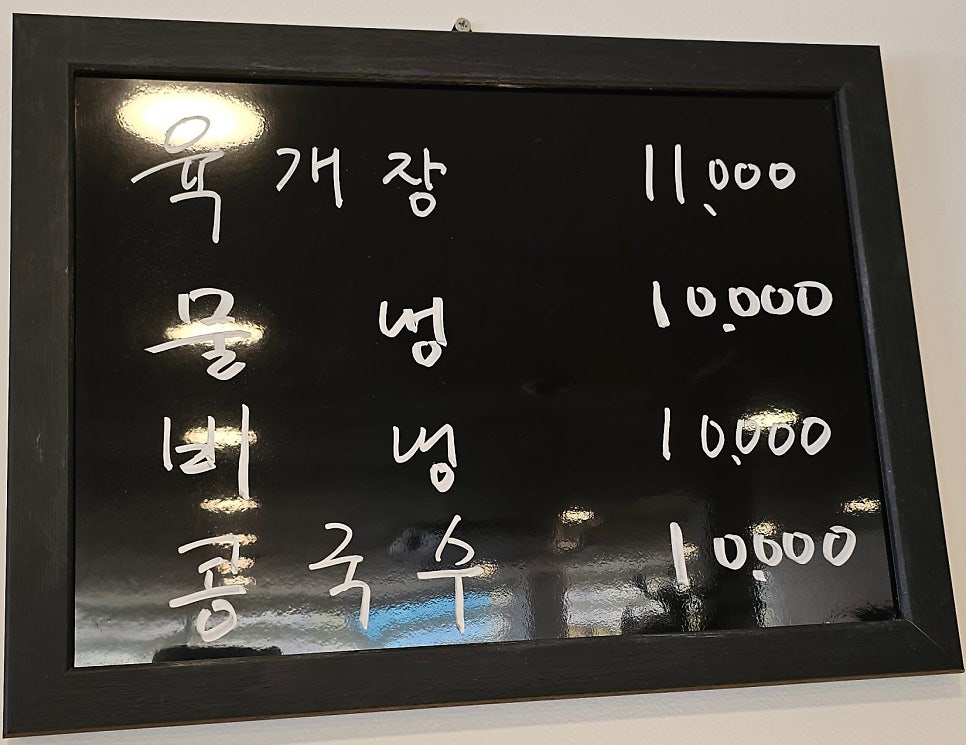 육개장 11,000
물 냉 10,000
비 냉 10,000
콩국수 10,000